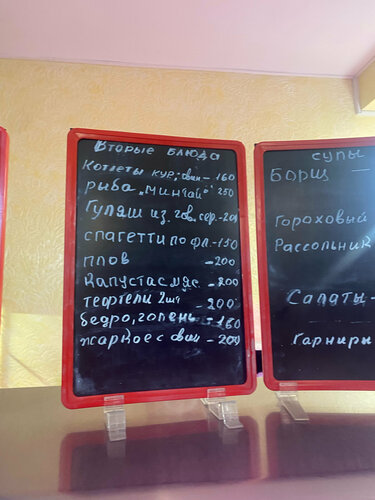 Вторые блюда
Котлеты кур, свин - 160
рыба "Минтай" 250
Гуляш из гов. сер. - 200
спагетти по фл. - 150
плов - 200
Капуста с мяс - 200
тефтели 2шт - 200
бедро, голень - 160
жаркое с свин - 200
супы
Борщ -
Гороховый
Рассольник
Салаты -
Гарниры